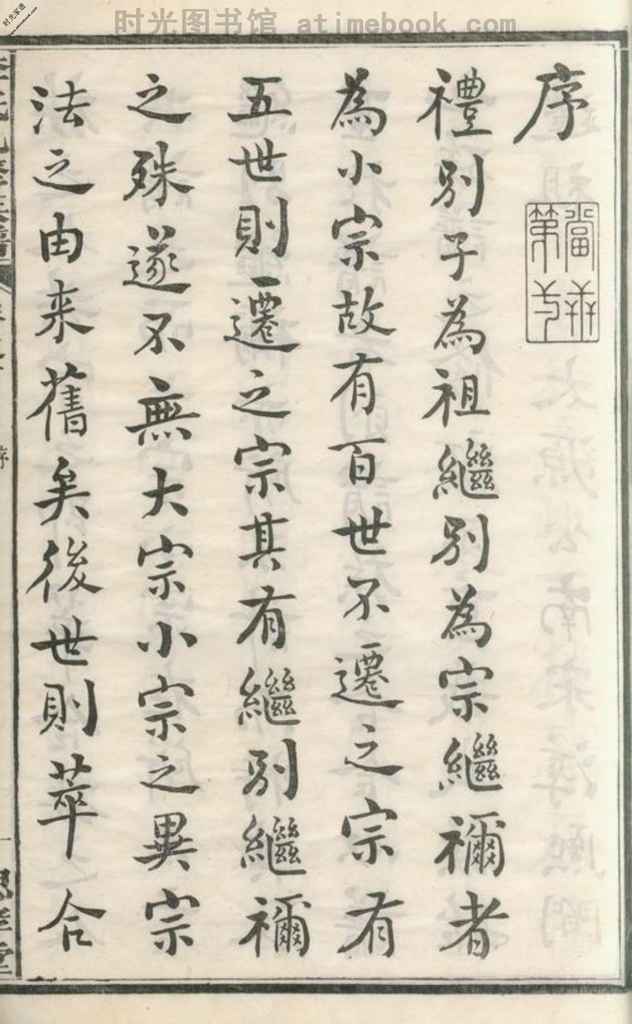 时光图书馆 atimebook.com
序
禮別子為祖繼別為宗繼禰者
為小宗故有百世不遷之宗有
五世則遷之宗其有繼別繼禰
之殊遂不無大宗小宗之異宗
法之由来舊矣後世則萃合
序